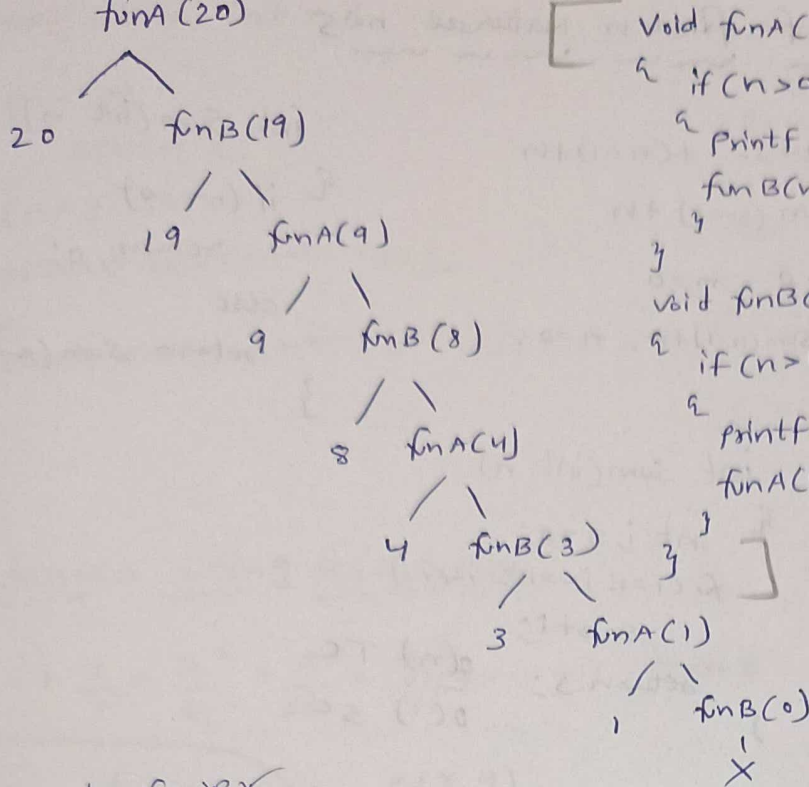 funA(20)
20 funB(19)
19 funA(9)
9 funB(8)
8 funA(4)
4 funB(3)
3 funA(1)
1 funB(0)
X
void funA(
{ if(n>0
{ printf
funB(
}
}
void funB(
{ if(n>
{ printf
funA(
}
}